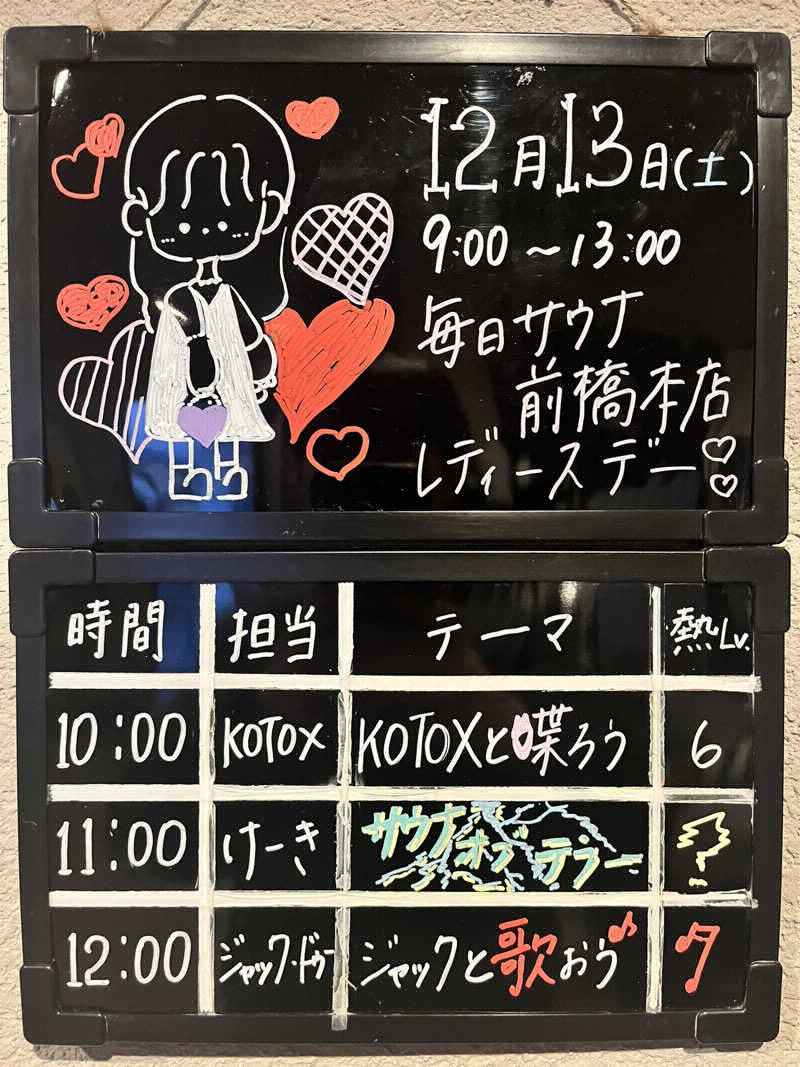 12月13日(土)
9:00～13:00
毎日サウナ
前橋本店
レディースデー
時間 担当 テーマ 熱Lv.
10:00 KOTOX KOTOXと喋ろう 6
11:00 けーき サウナオブテラー ?
12:00 ジャック・ドゥー ジャックと歌おう♪ 7